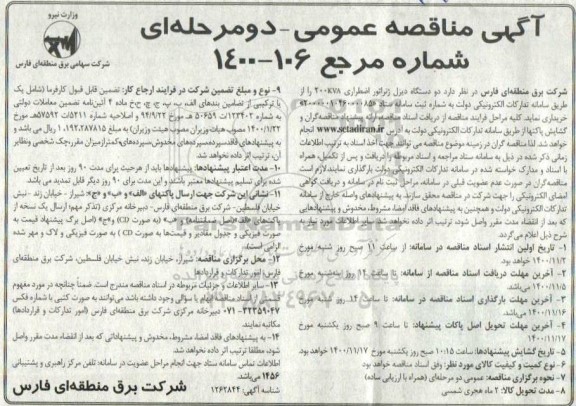 وزارت نیرو
شرکت سهامی برق منطقه‌ای فارس
آگهی مناقصه عمومی-دومرحله‌ای
شماره مرجع ۱۰۶-۱۴۰۰
شرکت برق منطقه‌ای فارس در نظر دارد دو دستگاه دیزل ژنراتور اضطراری ۲۰۰KVA را از
طریق سامانه تدارکات الکترونیکی دولت به شماره ثبت
خریداری نماید. کلیه مراحل فرایند مناقصه از دریافت اسناد مناقصه
گشایش پاکتها از طریق سامانه تدارکات الکترونیکی دولت به آدرس www.setadiran.ir انجام
خواهد شد. لذا مناقصه گران در زمینه موضوع مناقصه می توانند جهت اخذ اسناد به ترتیب اطلاعات
زمانی ذکر شده در ذیل به سامانه ستاد مراجعه و اسناد مربوط را دریافت و پس از تکمیل، همراه
با اسناد و مدارک خواسته شده در سامانه تدارکات الکترونیکی دولت بارگذاری نمایند. لازم است
مناقصه گران در صورت عدم عضویت قبلی در سامانه، مراحل ثبت نام در سامانه و دریافت گواهی
امضای الکترونیکی را جهت شرکت در مناقصه محقق سازند. به پیشنهادهای واصله خارج از سامانه
تدارکات الکترونیکی دولت و همچنین به پیشنهادهای فاقد امضاء، مشروط، مخدوش و پیشنهادهایی
که بعد از انقضاء مدت مقرر واصل شود، ترتیب اثر داده نخواهد شد. سایر اطلاعات مورد نیاز به
شرح ذیل اعلام می گردد:
۱- تاریخ اولین انتشار اسناد مناقصه در سامانه: از ساعت ۱۱ صبح روز شنبه مورخ
۱۴۰۰/۱۱/۲ خواهد بود.
۲- آخرین مهلت دریافت اسناد مناقصه از سامانه: تا ساعت ۱۴ روز شنبه مورخ
۳- آخرین مهلت بارگذاری اسناد مناقصه در سامانه: تا ساعت ۱۴ روز شنبه مورخ
۱۴۰۰/۱۱/۱۶ می‌باشد.
۴- آخرین مهلت تحویل اصل پاکات پیشنهاد: تا ساعت ۹ صبح روز یکشنبه مورخ
۱۴۰۰/۱۱/۱۷
۵- تاریخ گشایش پیشنهادها: ساعت ۱۰:۱۵ صبح روز یکشنبه مورخ ۱۴۰۰/۱۱/۱۷ خواهد بود
۶- نوع کمیت و کیفیت کالای مورد نظر: وفق اسناد مناقصه خواهد بود
۷- نحوه برگزاری مناقصه: عمومی دو مرحله‌ای (همراه با ارزیابی ساده)
۸- مدت تحویل کالا: ۲ ماه هجری شمسی
۹- نوع و مبلغ تضمین شرکت در فرایند ارجاع کار: تضمین قابل قبول کارفرما (شامل یک
یا ترکیبی از تضامین بندهای الف، ب، پ، ج، چ، ح، خ ماده ۴ آئین‌نامه تضمین معاملات دولتی
به شماره ۱۲۳۴۰۲/ت ۵۰۶۵۹ هـ مورخ ۹۴/۹/۲۲ و اصلاحیه شماره ۵۲۱۱/ت ۵۷۵۹۲هـ مورخ
۱۴۰۰/۱/۲۲ مصوب هیأت وزیران) به مبلغ ۱,۱۹۲,۲۸۷,۸۱۵ ریال می باشد و
به پیشنهادهای فاقد سپرده، سپرده‌های مخدوش، سپرده‌های کمتر از میزان مقرر، چک شخصی و نظایر
آن، ترتیب اثر داده نخواهد شد.
۱۰- مدت اعتبار پیشنهادها: پیشنهادها باید از هر حیث برای مدت ۹۰ روز بعد از تاریخ تعیین
شده برای تسلیم پیشنهادها معتبر باشد و این مدت برای ۹۰ روز دیگر قابل تمدید می باشد.
۱۱- نشانی این شرکت جهت ارسال پاکتهای «الف» و «ب» و «ج»: شیراز - خیابان زند - نبش
خیابان فلسطین- شرکت برق منطقه‌ای فارس - دبیرخانه مرکزی
پاکت‌های «الف» (اصل ضمانتنامه) و «ب» (به صورت CD) و «ج» (اصل برگ پیشنهاد قیمت به
صورت فیزیکی و جدول مقادیر و قیمت‌ها به صورت CD) به صورت فیزیکی و لاک و مهر شده
الزامی است)
۱۲- محل برگزاری مناقصه: شیراز، خیابان زند، نبش خیابان فلسطین، شرکت برق منطقه‌ای
فارس، امور تدارکات و قراردادها
۱۳- سایر اطلاعات و جزئیات مربوطه در اسناد مناقصه مندرج است. ضمناً چنانچه در مورد مفهوم
اسناد مناقصه ابهام یا سؤالی وجود داشته باشد می‌توانند به صورت کتبی با شماره فکس
۳۲۳۵۹۰۴۷-۰۷۱ دبیرخانه مرکزی شرکت برق منطقه‌ای فارس (امور تدارکات و قراردادها)
مکاتبه نمایند.
۱۴- به پیشنهادهای فاقد امضاء، مشروط، مخدوش و پیشنهاداتی که بعد از انقضاء مدت مقرر واصل
شود، مطلقا ترتیب اثر داده نخواهد شد.
اطلاعات تماس سامانه ستاد جهت انجام مراحل عضویت در سامانه: تلفن مرکز راهبری و پشتیبانی
۱۴۵۶ می‌باشد.
شناسه آگهی: ۱۲۶۲۸۴۴
شرکت برق منطقه‌ای فارس